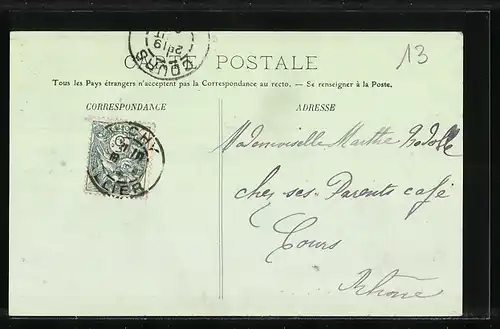 13
COURS
CARTE POSTALE
Tous les Pays étrangers n'acceptent pas la Correspondance au recto. — Se renseigner à la Poste.
CORRESPONDANCE
ADRESSE
VICHY
ALLIER
Mademoiselle Marthe
chez ses Parents café
Cours
Rhône